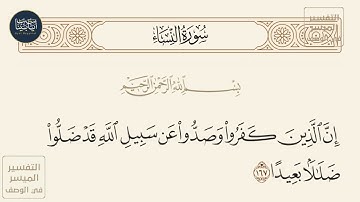 سُورَةُ النِّسَاءِ
بِسْمِ اللَّهِ الرَّحْمَٰنِ الرَّحِيمِ
إِنَّ ٱلَّذِينَ كَفَرُوا۟ وَصَدُّوا۟ عَن سَبِيلِ ٱللَّهِ قَدْ ضَلُّوا۟
ضَلَٰلًۢا بَعِيدًا ١٦٧
التفسير
الميسر
في الوصف